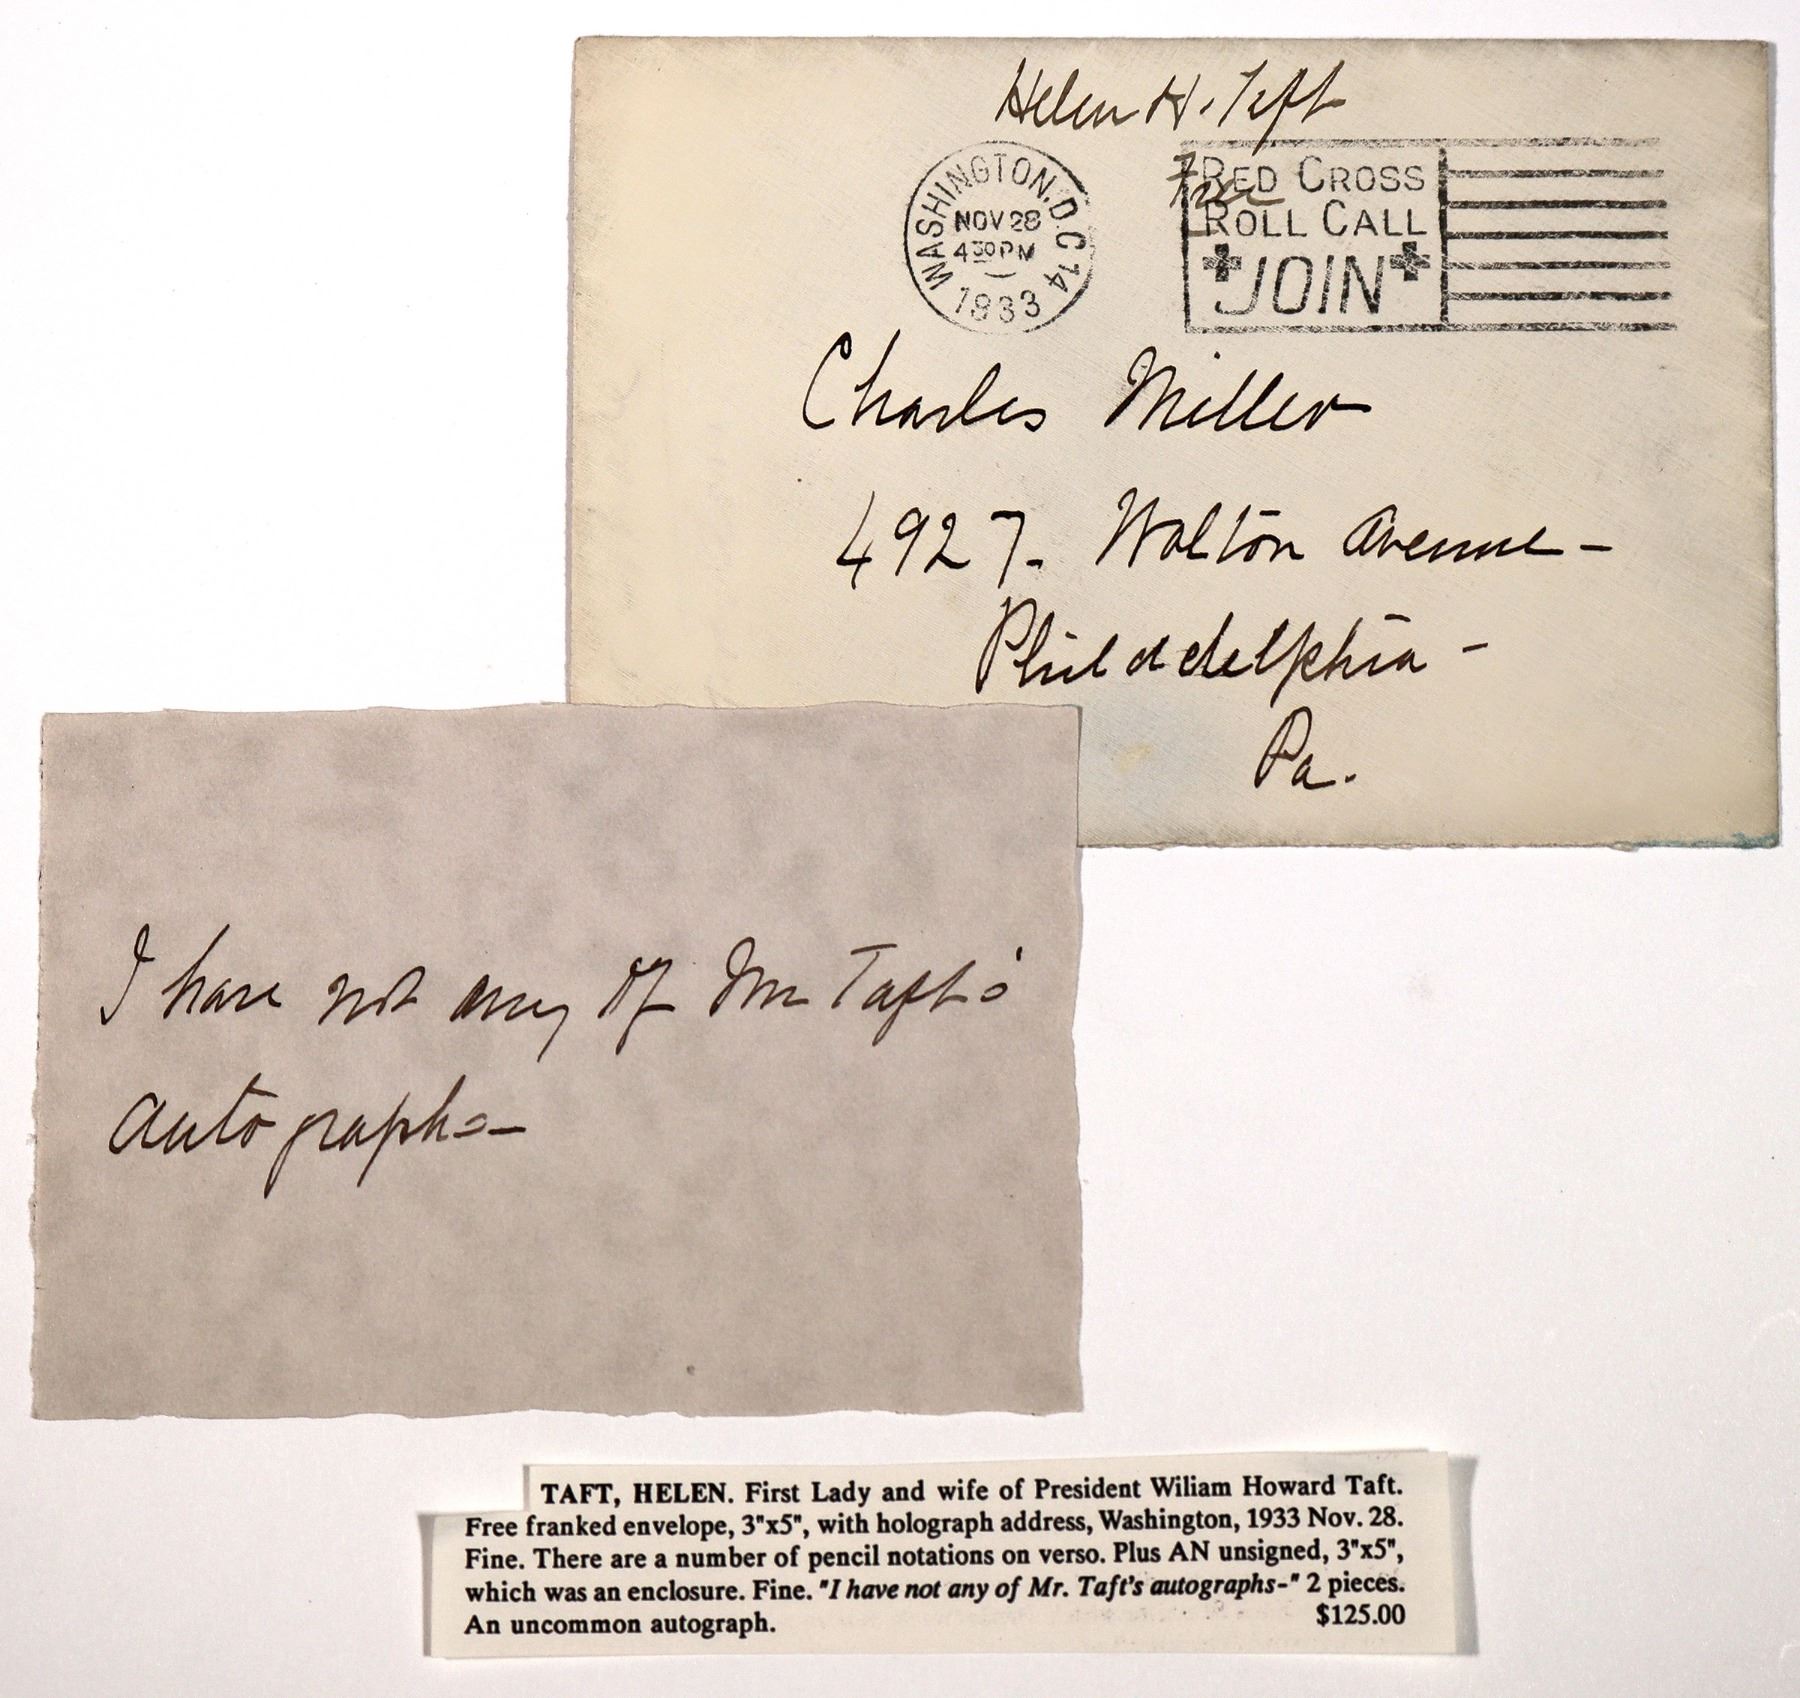 Helen H. Taft
Free
WASHINGTON, D.C. 14
NOV 28
4 30 PM
1933
RED CROSS
ROLL CALL
JOIN
Charles Miller
4927- Walton Avenue-
Philadelphia-
Pa.
I have not any of Mr Taft's
autographs-
TAFT, HELEN. First Lady and wife of President Wiliam Howard Taft.
Free franked envelope, 3"x5", with holograph address, Washington, 1933 Nov. 28.
Fine. There are a number of pencil notations on verso. Plus AN unsigned, 3"x5",
which was an enclosure. Fine. "I have not any of Mr. Taft's autographs-" 2 pieces.
An uncommon autograph. $125.00